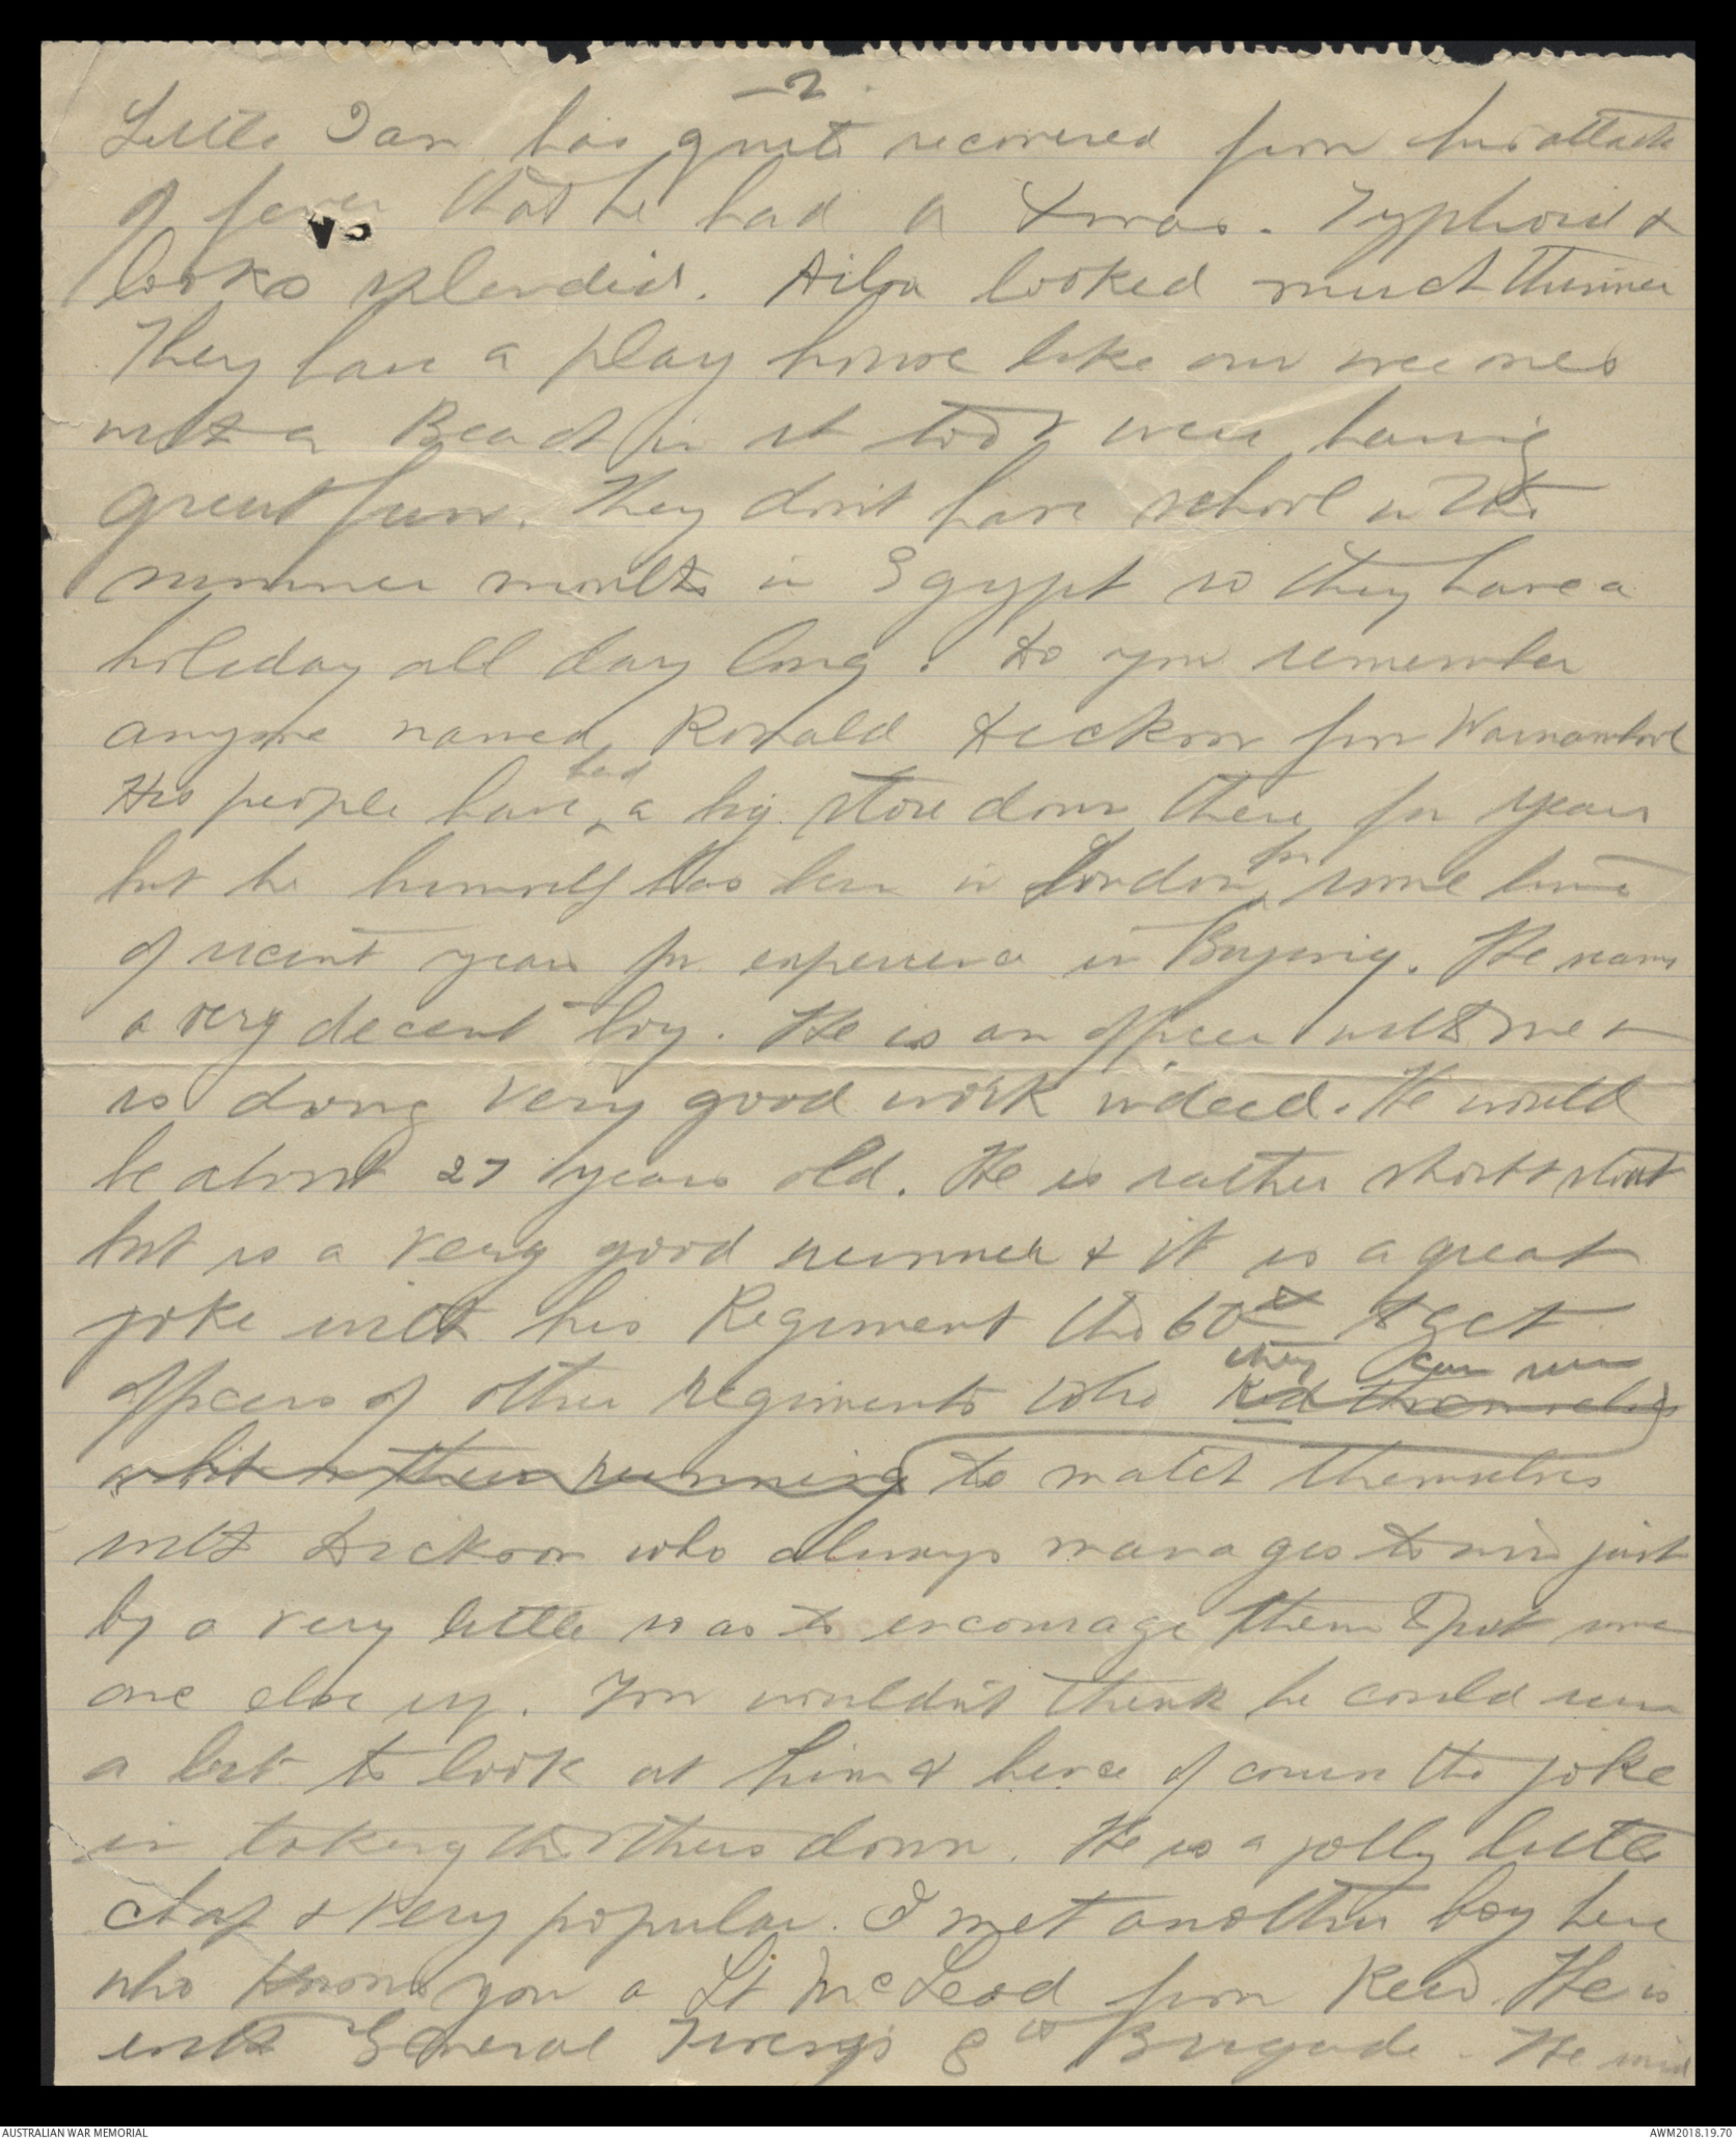 -2-
Little Ian has quite recovered from his attack
of fever that he had a Xmas. Typhoid &
looks splendid. Ailsa looked much thinner
They have a play house like our wee ones
with a Beach in it too & were having
great fun. They don't have school in the
summer months in Egypt so they have a
holiday all day long. Do you remember
anyone named Ronald Dickson from Warnambool
His people have had a big store down there for years
but he himself has been in London for some time
of recent years for experience in Buying. He seems
a very decent boy. He is an officer with me &
is doing very good work indeed. He would
be about 27 years old. He is rather short & stout
but is a very good runner & it is a great
joke with his Regiment the 60th to get
officers of other regiments who they can run
a bit in their running to match themselves
with Dickson who always manages to win just
by a very little so as to encourage them & put some
one else up. You wouldn't think he could run
a bit to look at him & hence of course the joke
in taking the others down. He is a jolly little
chap & very popular. I met another boy here
who knows you a Lt McLeod from Kew. He is
with General Tivey's 8th Brigade. He said
AUSTRALIAN WAR MEMORIAL
AWM2018.19.70